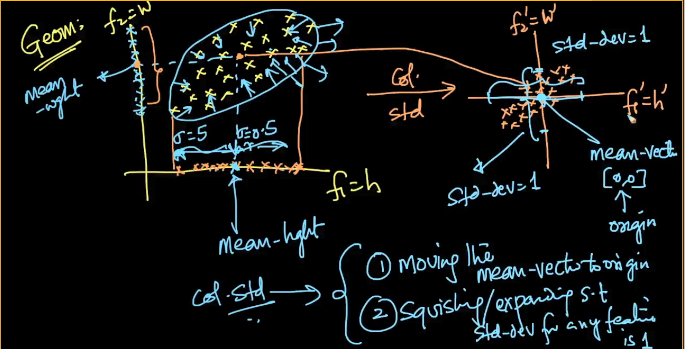 Geom:
f₂=W
mean
-wght
σ=5
σ=0.5
f₁=h
mean-hght
col.
std
f₂'=W'
std-dev=1
f₁'=h'
std-dev=1
mean-vect
[0,0]
origin
Col. Std
① Moving the
mean-vector to origin
② Squishing/expanding s.t
std-dev for any feature
is 1